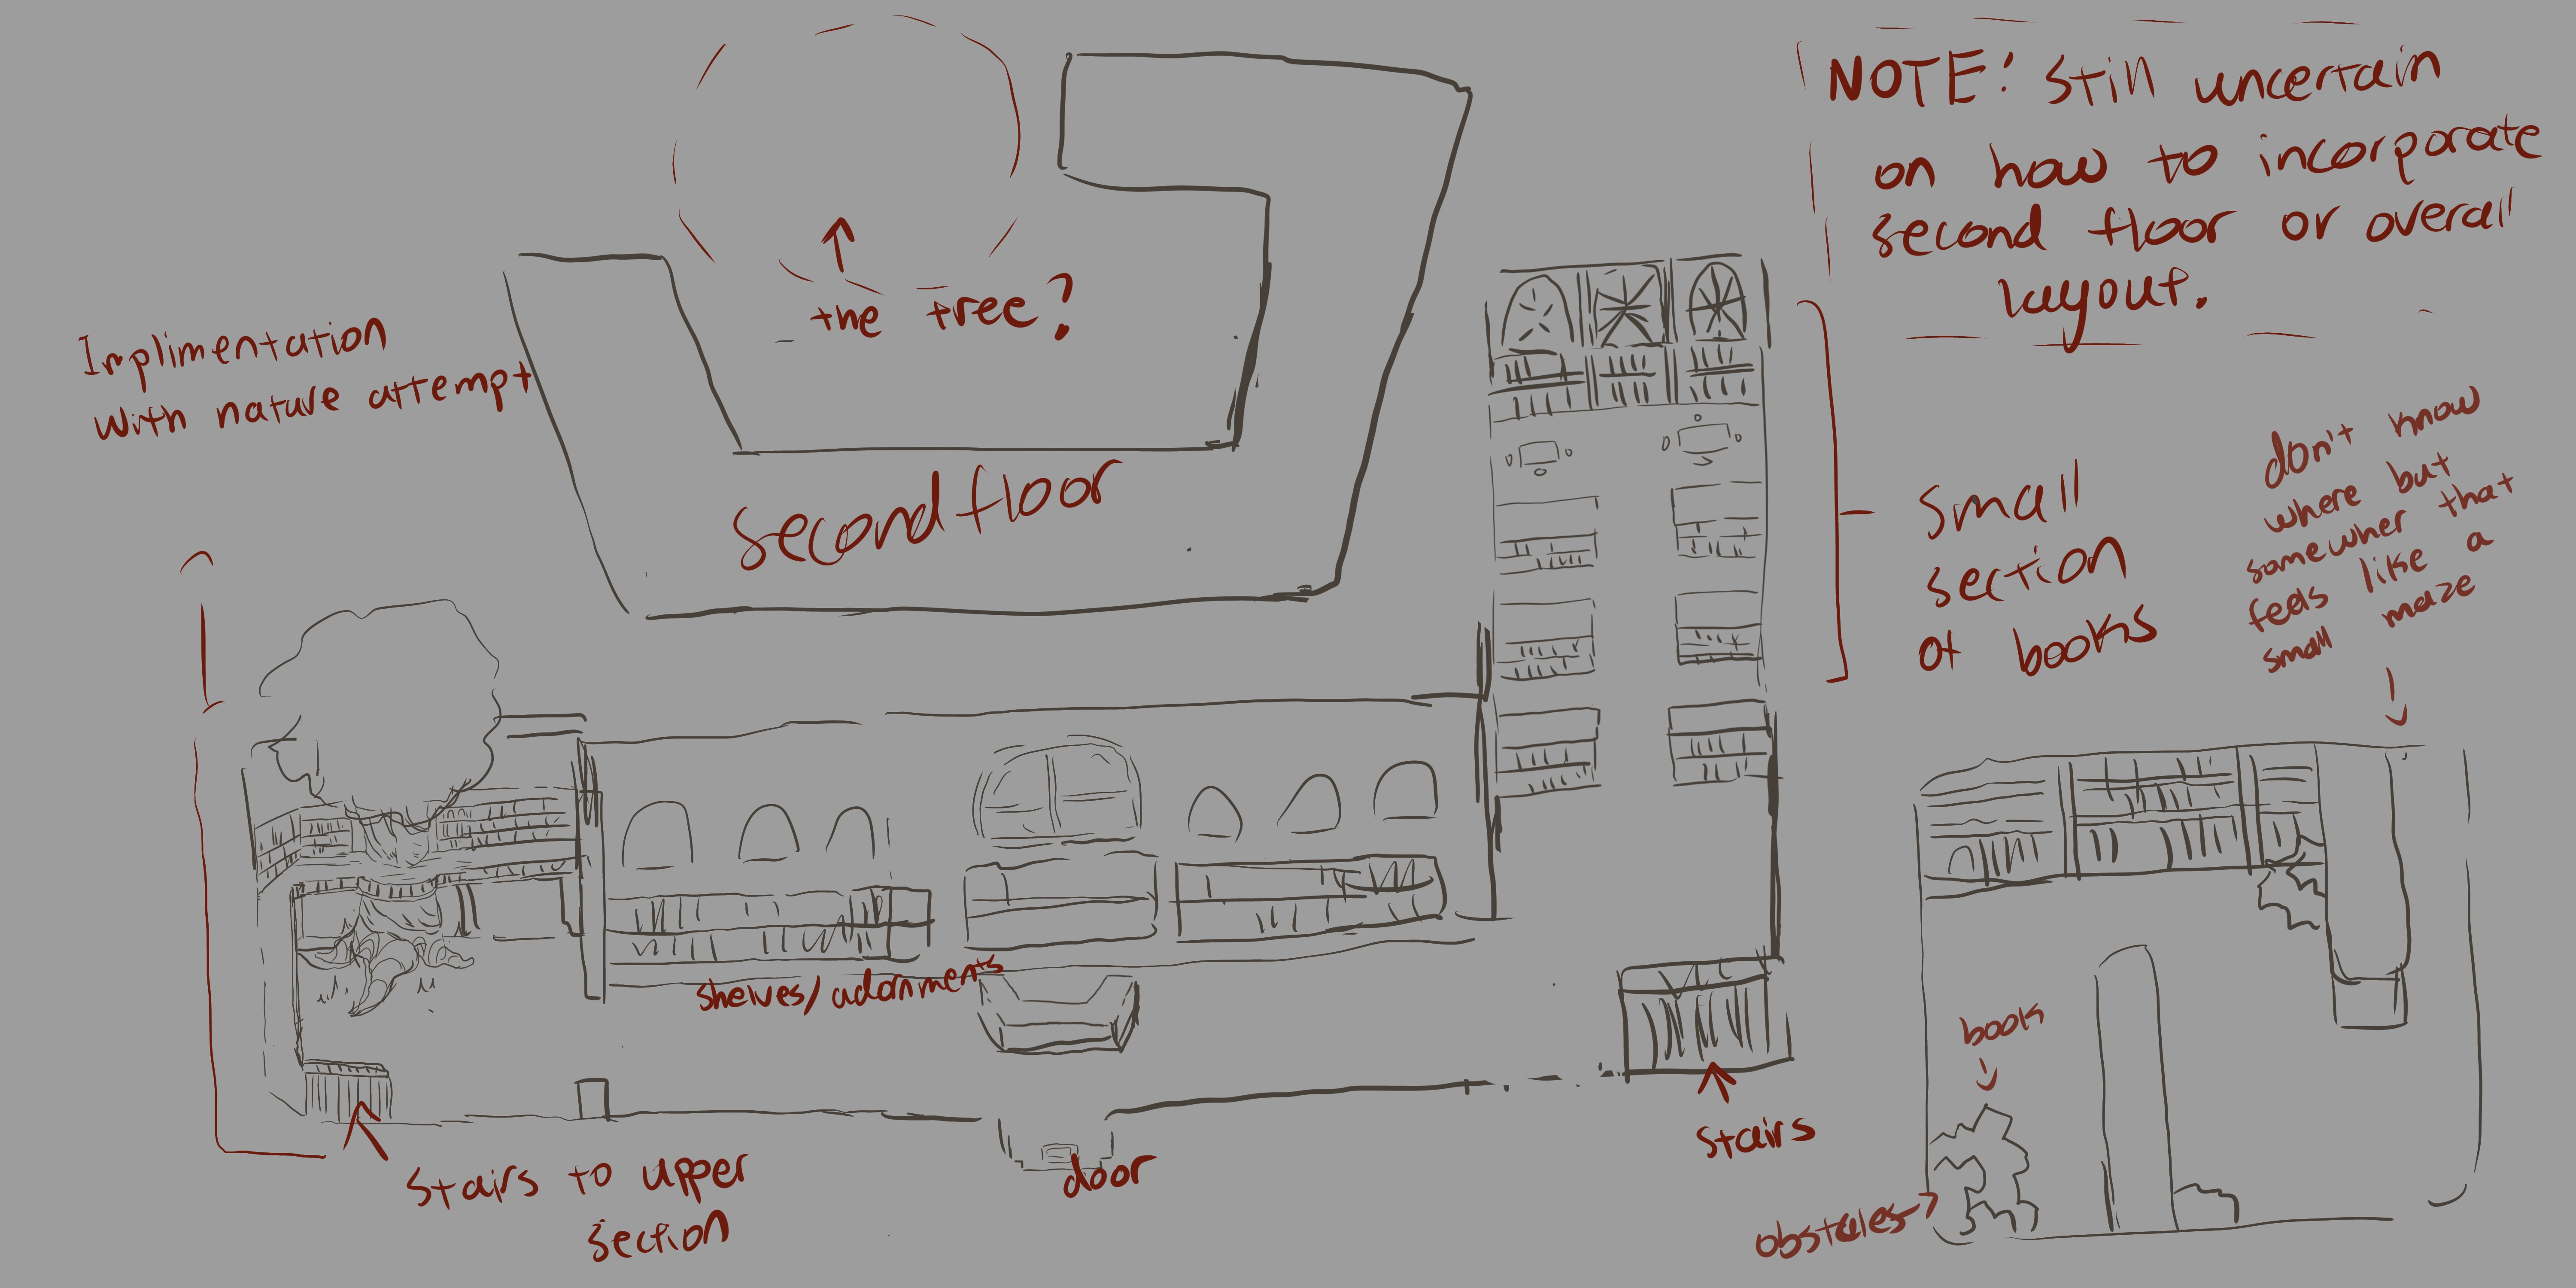 NOTE: Still uncertain
on how to incorporate
second floor or overall
layout.
the tree?
Implimentation
with nature attempt
second floor
small
section
of books
don't know
where but
somewher that
feels like a
small maze
shelves/adornments
book
stairs
door
stairs to upper
section
obstacles